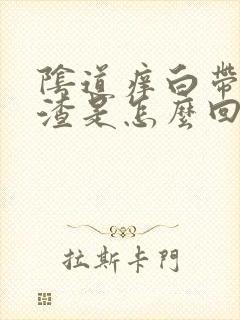 陰道痒白帶
渣是怎麼回
拉斯卡門